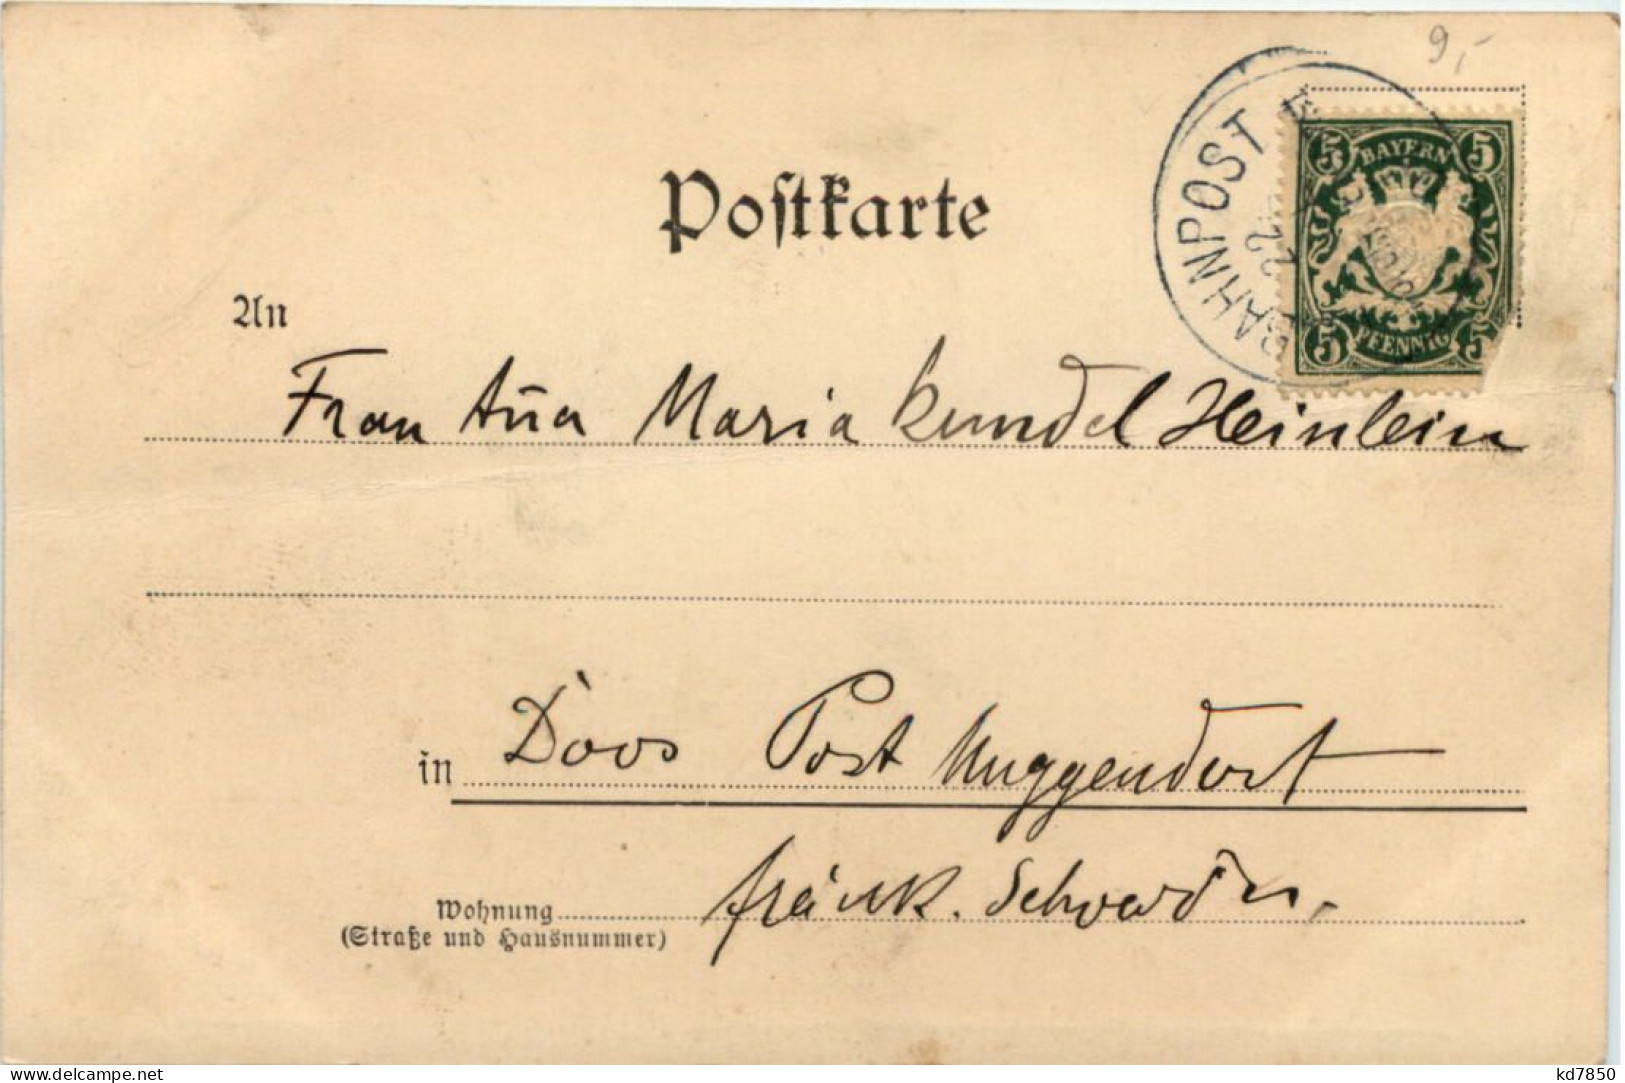 9,-
Postkarte
BAHNPOST
22
5 BAYERN 5
5 PFENNIG 5
An
Frau Anna Maria Kundel Heinlein
in Doos Post Muggendorf
Wohnung fränk. Schweiz
(Straße und Hausnummer)
www.delcampe.net
kd7850